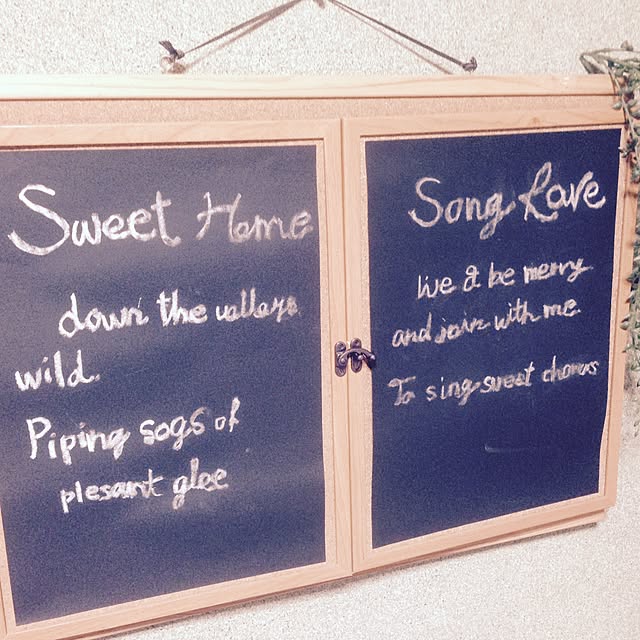 Sweet Home
down the valleys
wild.
Piping sogs of
plesant glee
Song Love
live & be merry
and join with me
To sing sweet chorus